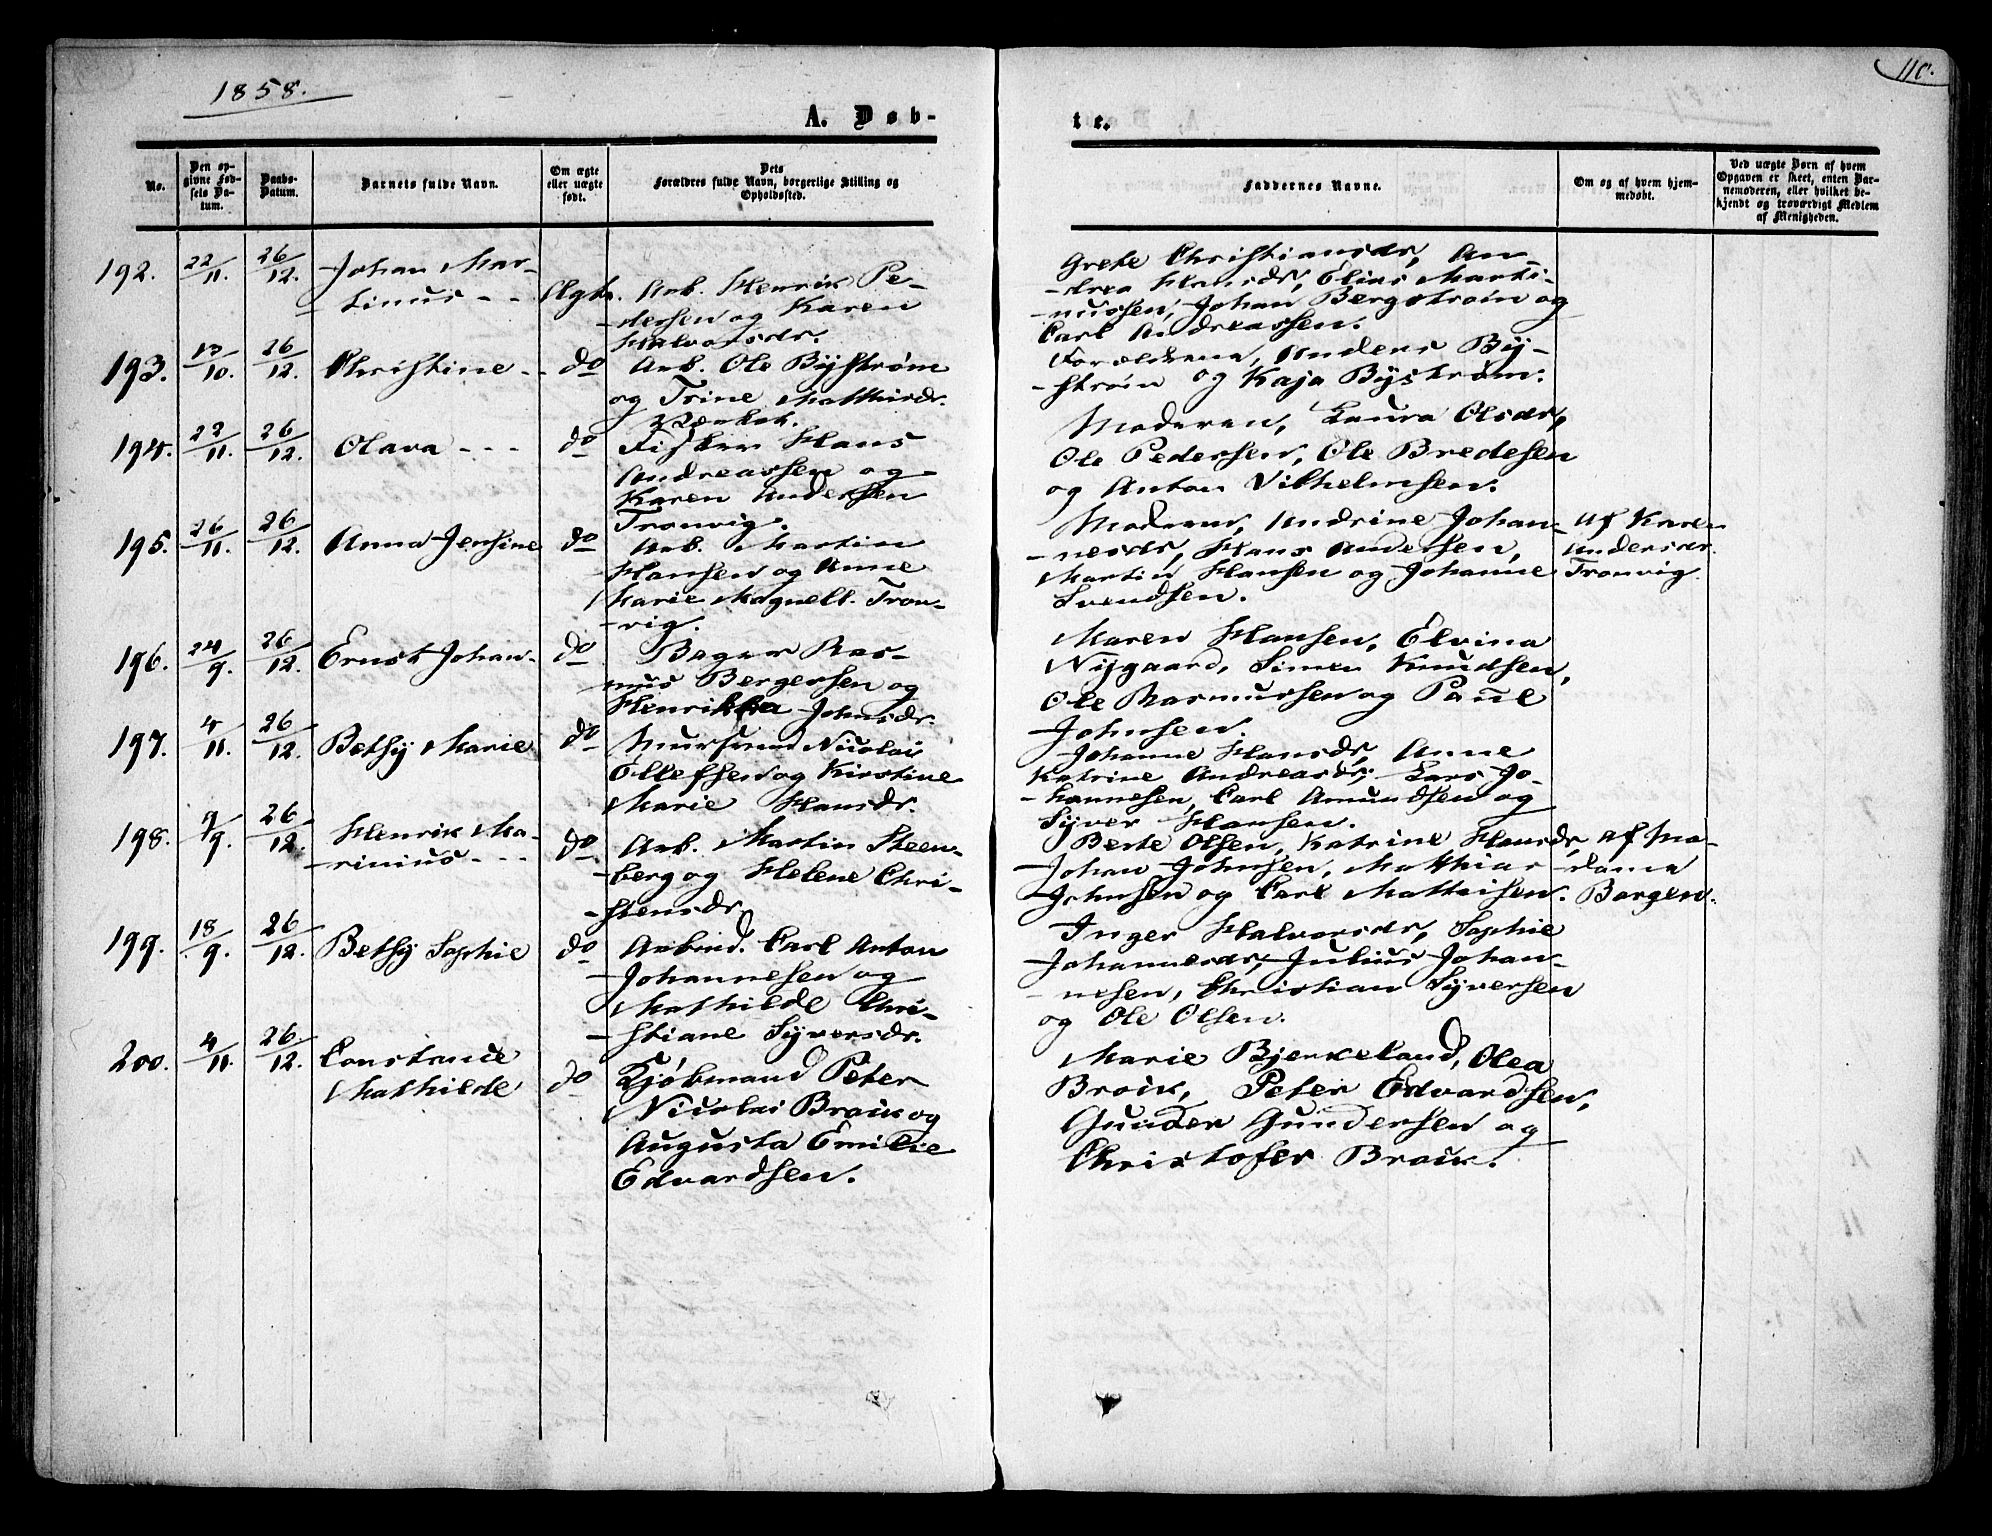 1858.
110.
A. Døb-
te.
No.
Den op-
givne Fød-
sels Da-
tum.
Daabs-
Datum.
Barnets fulde Navn.
Om ægte
eller uægte
født.
Dets
Forældres fulde Navn, borgerlige Stilling og
Opholdssted.
Faddernes Navne.
Om og af hvem hjem-
medøbt.
Ved uægte Børn af hvem
Opgaven er skeet, enten Bar-
nemoderen, eller hvilket be-
kjendt og troværdigt Medlem
af Menigheden.
192. 22/11. 26/12. Johan Mar-
tinus - - Ægte. Arb. Henrik Pe-
dersen og Karen
Halvorsdr.
Grete Christiansdr, An-
drea Hansdr, Elias Marti-
nussen, Johan Bergstrøm og
Carl Andreassen.
193. 13/10. 26/12. Christine - - do Arb. Ole Byström
og Trine Mathisdr.
Forældrene, Anders By-
strøm og Kaja Bystrøm.
194. 22/11. 26/12. Olava - - - do Fisker Hans
Andreassen og
Karen Andersen
Tronvig.
Moderen, Laura Olsdr,
Ole Pedersen, Ole Bredesen
og Anton Vilhelmsen.
195. 26/11. 26/12. Anna Jensine do Arb. Martin
Hansen og Anne
Marie Magnell. Tron-
vig.
Moderen, Andrine Johan-
nesdr, Hans Andersen,
Martin Hansen og Johanne
Svendsen.
Af Karen
Andersdr.
Tronvig.
196. 24/9. 26/12. Ernst Johan - do Bager Ras-
mus Bergersen og
Henrikka Johnsdr.
Maren Hansen, Elvina
Nygaard, Simen Knudsen,
Ole Rasmussen og Paul
Johnsen.
197. 4/11. 26/12. Bethy Marie do Muursvend Nicolai
Ellefsen og Kirstine
Marie Hansdr.
Johanne Hansdr, Anne
Katrine Andreasdr, Lars Jo-
hannesen, Carl Amundsen og
Syver Hansen.
198. 9/9. 26/12. Henrik Ma-
rinius - - - do Arb. Martin Steen-
berg og Helene Chri-
stensdr.
Berte Olsen, Katrine Hansdr,
Johan Johnsen, Mathias
Johnsen og Carl Mathisen.
Af Ma-
dame
Borgen.
199. 18/9. 26/12. Bethy Sophie do Arbmd. Carl Anton
Johannesen og
Mathilde Chri-
stiane Syversdr.
Inger Halvorsdr, Sophie
Johannesdr, Julius Johan-
nesen, Christian Syversen
og Ole Olsen.
200. 4/11. 26/12. Constance
Mathilde do Kjøbmand Peter
Nicolai Broik og
Augusta Emilie
Edvardsen.
Marie Bjerkeland, Olea
Broik, Peter Edvardsen,
Gunder Gundersen og
Christofer Broik.